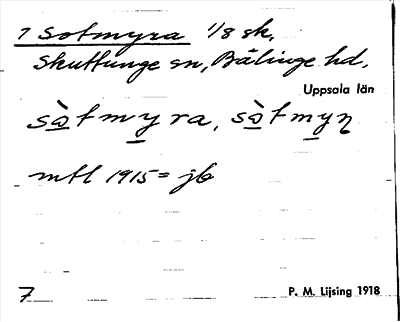 7 Sotmyra 1/8 sk,
Skuttunge sn, Bälinge hd,
Uppsala län
sò̱tmy̱ra, sò̱tmy̱n
mtl 1915 = jb
7 P. M. Lijsing 1918